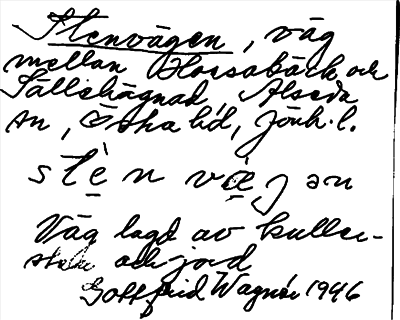 Stenvägen, väg
mellan Hossabäck och
Sällshägnad, Alseda
sn, Östra hd, Jönk. l.
stè̱n væ̱̀jan
Väg lagd av kuller-
sten och jord
Gottfrid Wagnér 1946